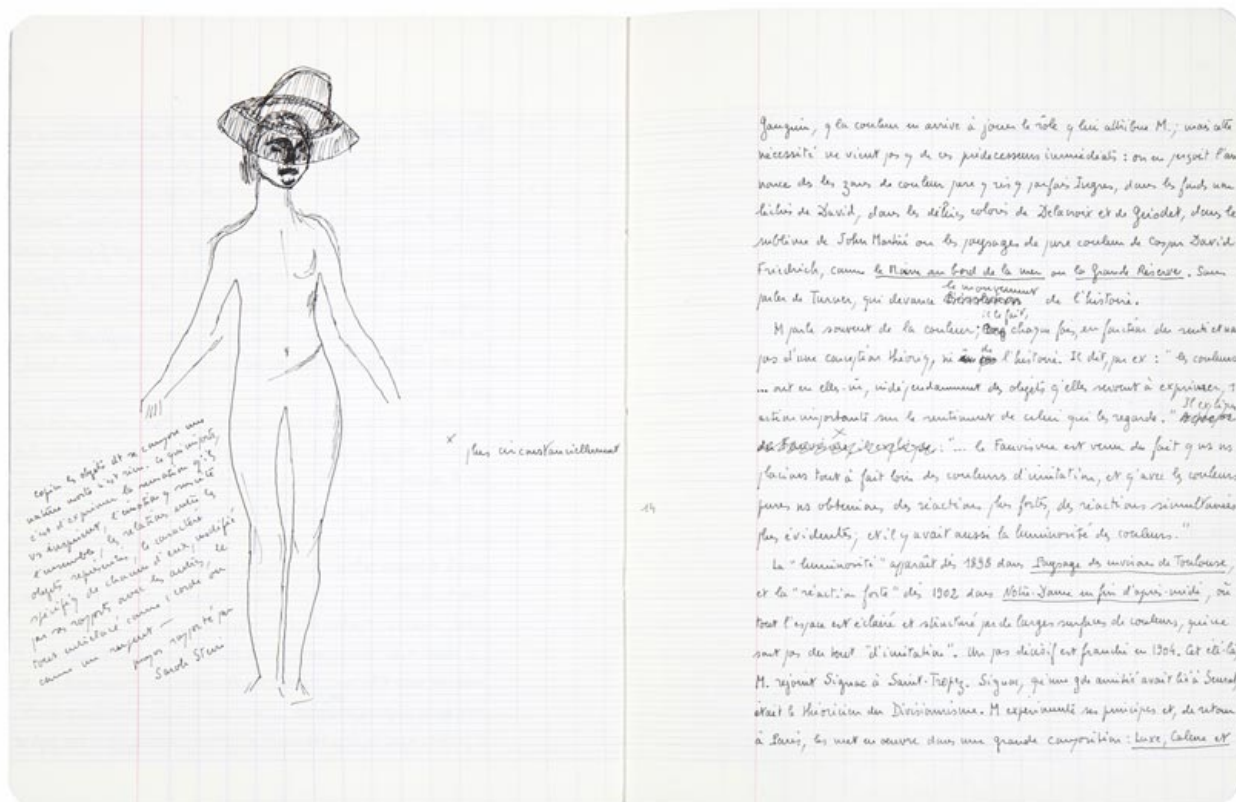 copier les objets d1 nature morte c'est rien. Ce qui importe,
c'est d'exprimer la sensation q'ils
vs inspirent, l'émotion q suscite
l'ensemble, les relations entre les
objets représentés, le caractère
spécifiq de chacun d'eux, modifié
par ses rapports avec les autres, le
tout entrelacé comme 1 corde ou
comme un serpent —
propos rapporté par
Sarah Stein
x plus circonstanciellement
14
Gauguin, q la couleur en arrive à jouer le rôle q lui attribue M.; mais cette
nécessité ne vient pas q de ces prédecesseurs immédiats : on en perçoit l'an
nonce ds les zones de couleur pure q parfois Ingres, dans les fonds
de David, dans les coloris de Delacroix et de Girodet, dans le
sublime de John Martin ou les paysages de pure couleur de Caspar David
Friedrich, comme le Moine au bord de la mer ou la Grande Réserve. Sans
parler de Turner, qui devance le mouvement de l'histoire.
M parle souvent de la couleur; il le fait, chaque fois, en fonction du senti et non
pas d'une conception théoriq, ni de l'histoire. Il dit, par ex : "les couleurs
... ont en elles-m, indépendamment des objets q'elles servent à exprimer, 1
action importante sur le sentiment de celui qui les regarde." Il explique
x : "... le Fauvisme est venu du fait q ns ns
placions tout à fait loin des couleurs d'imitation, et q'avec les couleurs
pures ns obtenions des réactions plus fortes, des réactions simultanées
plus évidentes; et il y avait aussi la luminosité des couleurs."
La "luminosité" apparaît dès 1898 dans Paysage des environs de Toulouse,
et la "réaction forte" dès 1902 dans Notre-Dame en fin d'après-midi, où
tout l'espace est éclairé et structuré par de larges surfaces de couleurs, qui ne
sont pas du tout "d'imitation". Un pas décisif est franchi en 1904. Cet été-là,
M. rejoint Signac à Saint-Tropez. Signac, qu'une gde amitié avait lié à Seurat,
était le théoricien du Divisionnisme. M expérimente ses principes et, de retour
à Paris, les met en œuvre dans une grande composition : Luxe, Calme et